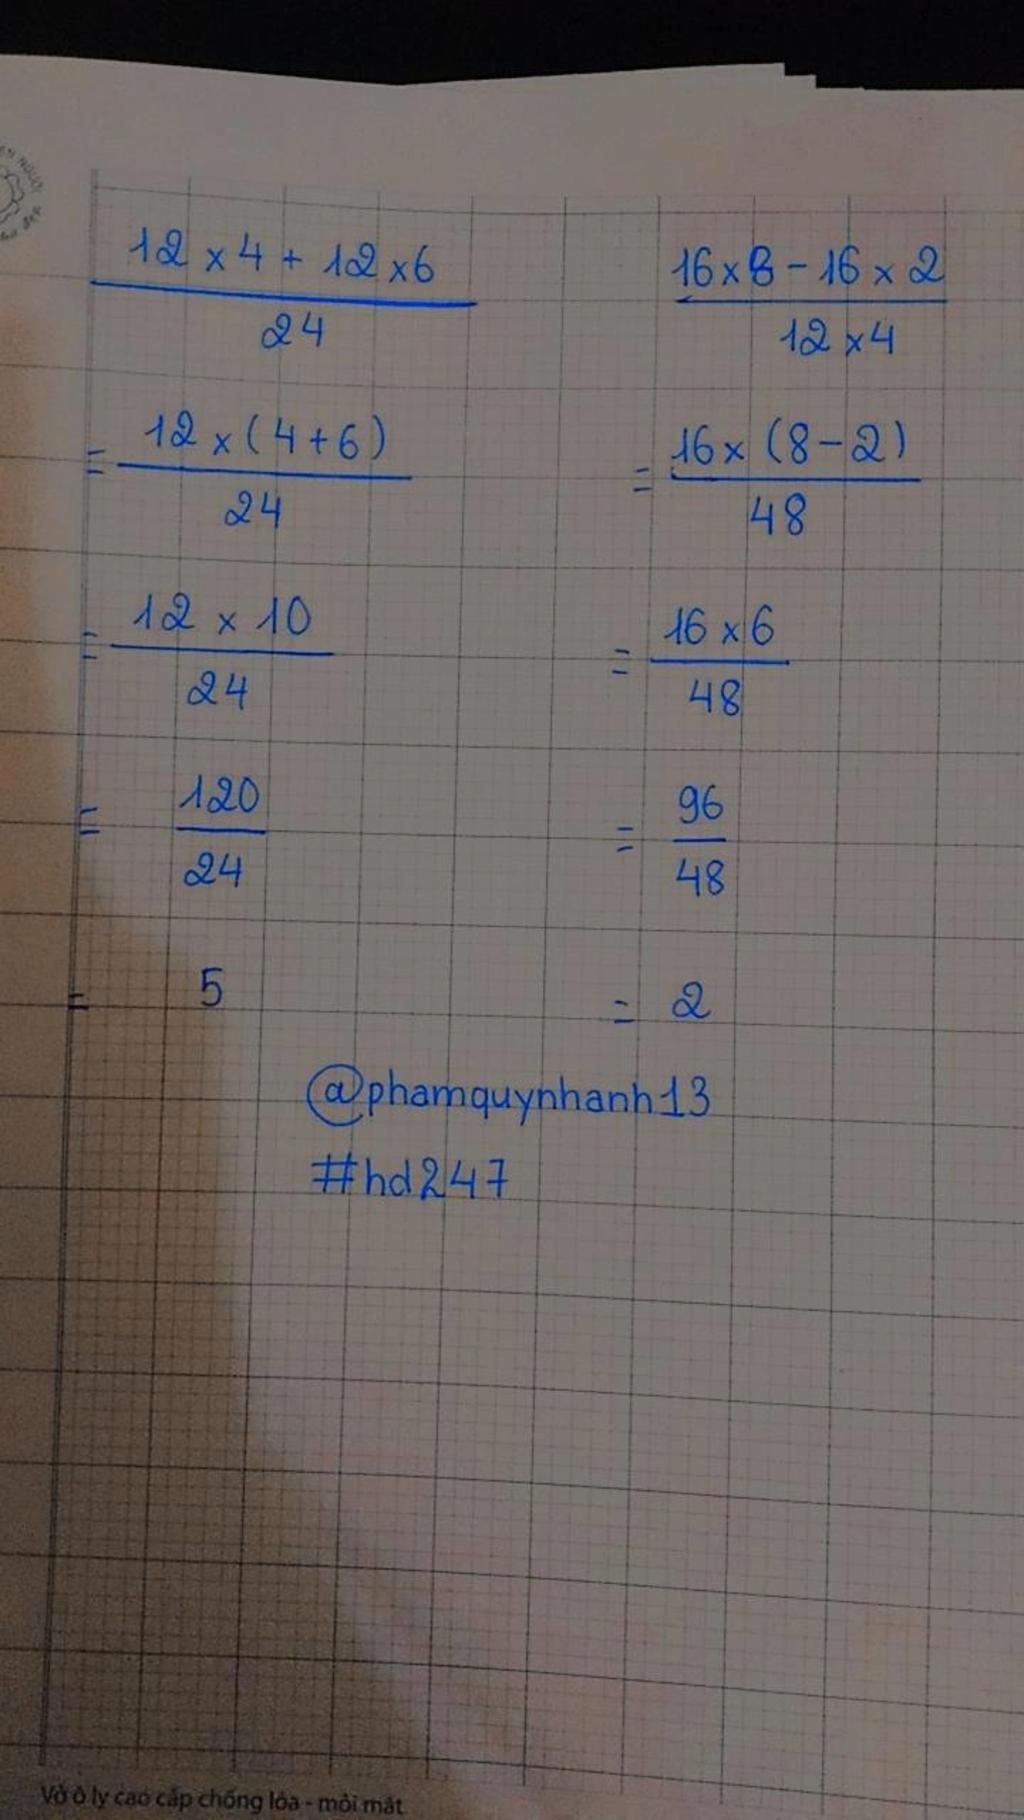 12 × 4 + 12 × 6
24
= 12 × (4 + 6)
24
= 12 × 10
24
= 120
24
= 5
16 × 8 - 16 × 2
12 × 4
= 16 × (8 - 2)
48
= 16 × 6
48
= 96
48
= 2
@phamquynhanh13
#hd247
Vở ô ly cao cấp chống lóa - mỏi mắt